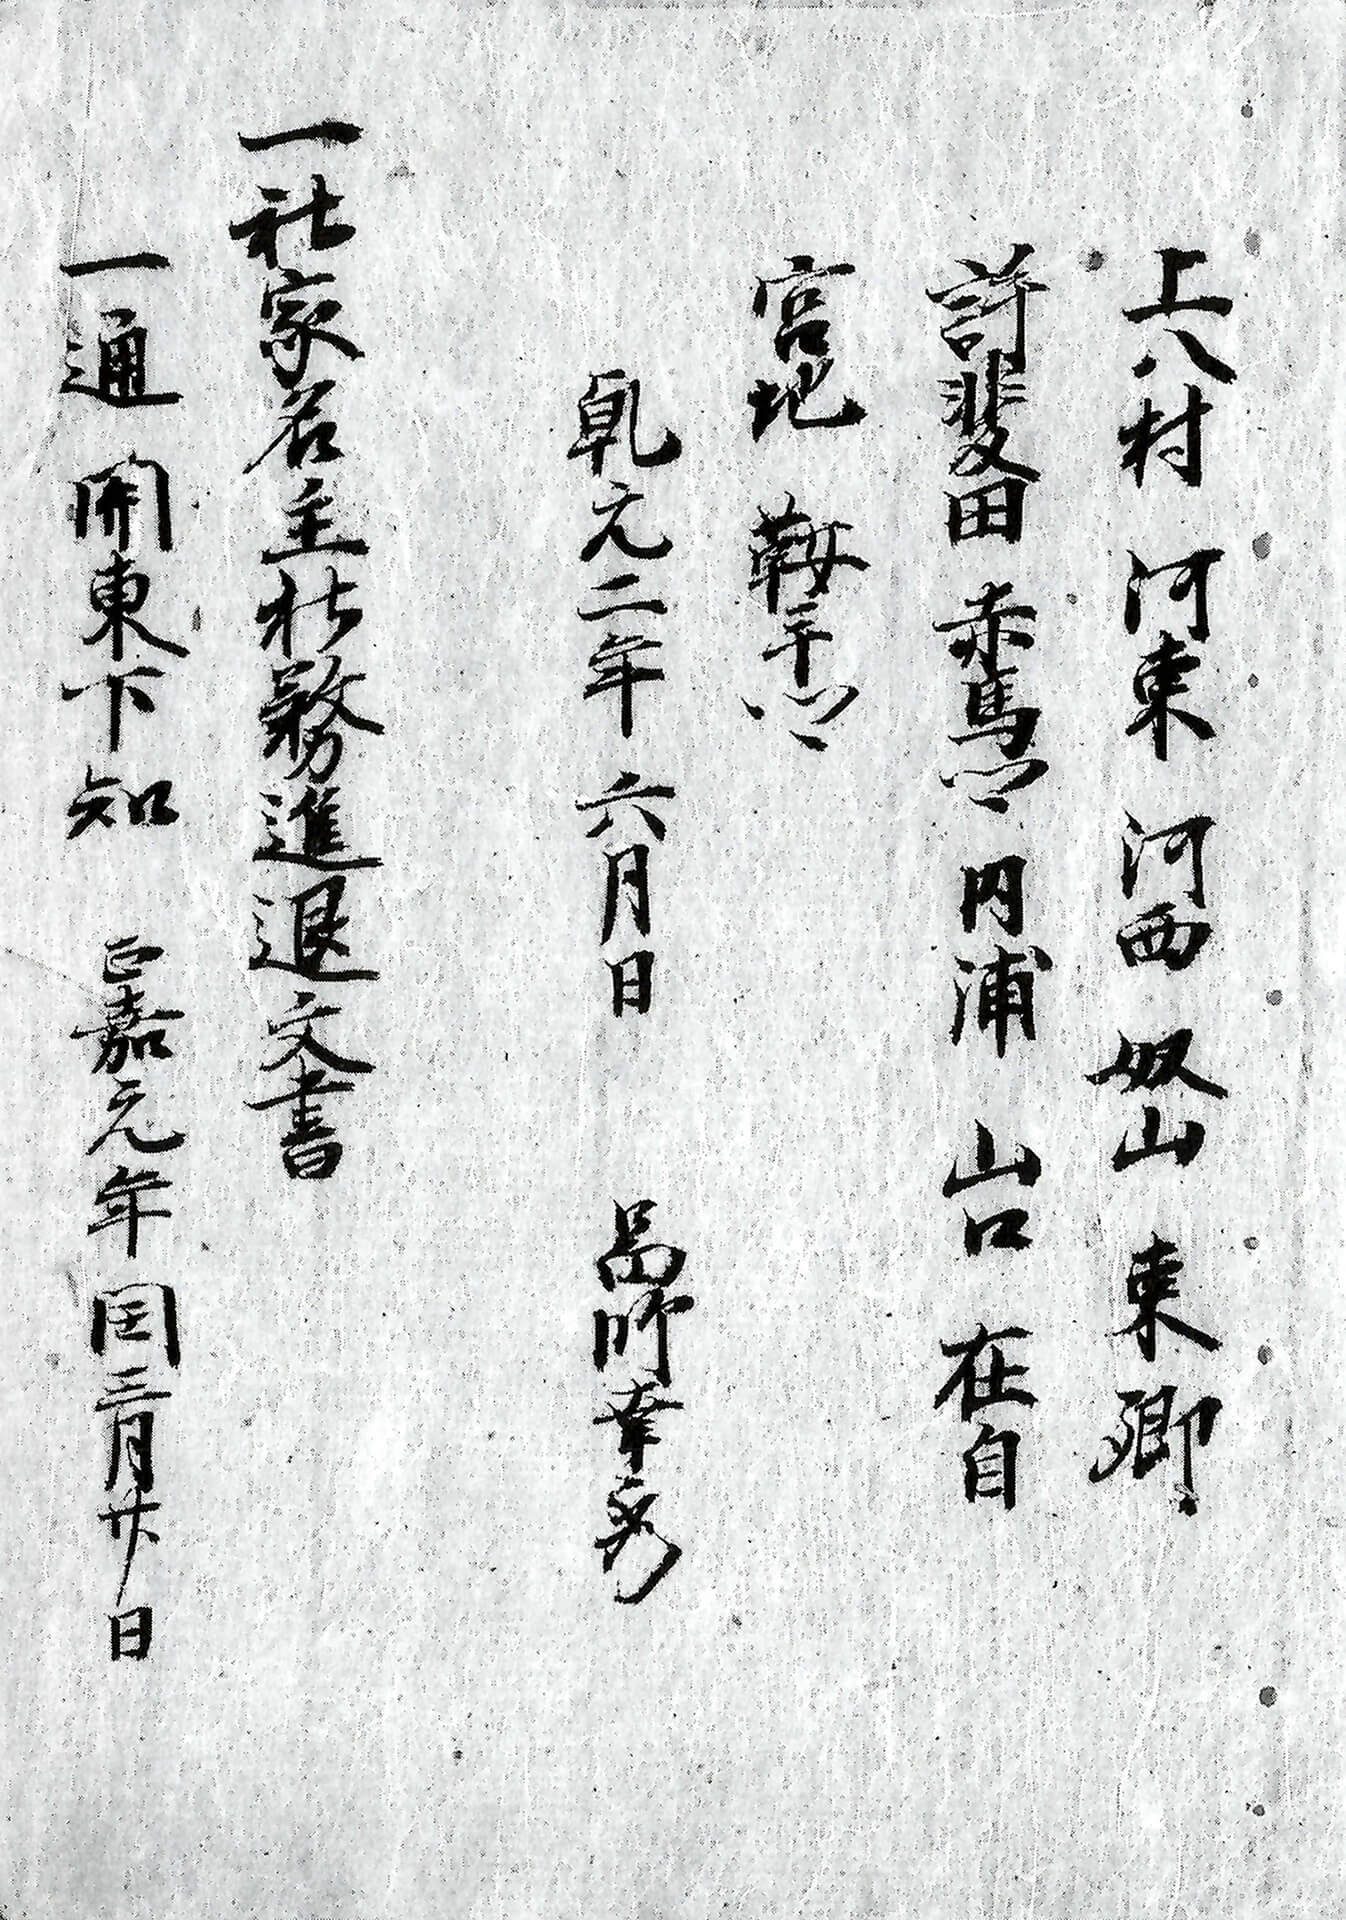 上八村 河東 河西 奴山 東郷
許斐田 赤馬 内浦 山口 在自
宮地 鞍手
乾元二年六月日 啚師幸秀
一社家名主社務進退文書
一通 関東下知 正嘉元年閏三月廿日